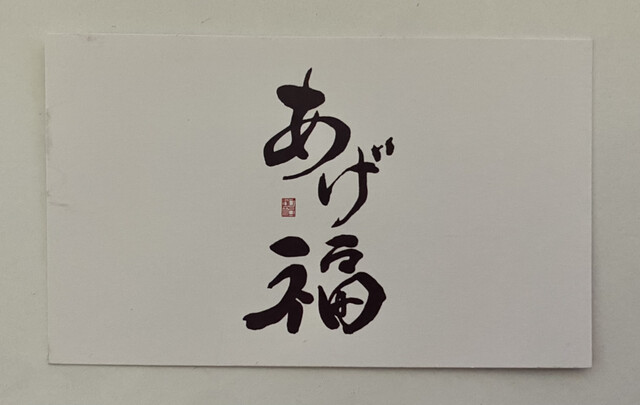 あげ福